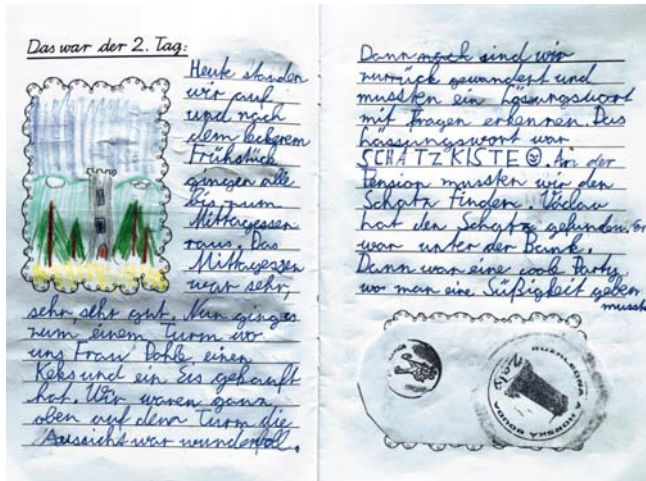 Das war der 2. Tag:
Heute standen
wir auf
und nach
dem leckerem
Frühstück
gingen alle
bis zum
Mittagessen
raus. Das
Mittagessen
war sehr,
sehr, sehr gut. Nun ginges
zum einem Turm wo
uns Frau Dohle einen
Keks und ein Eis gekauft
hat. Wir waren ganz
oben auf dem Turm die
Aussicht war wundervoll.
Dann noch sind wir
zurrück gewandert und
mussten ein Lösungswort
mit Fragen erkennen. Das
Lössungswort war
SCHATZKISTE ☺. An der
Pension mussten wir den
Schatz finden. Václav
hat den Schatz gefunden. Er
war unter der Bank.
Dann war eine coole Party
wo man eine Süßigkeit geben
musste
Žalý
ROZHLEDNA A HORSKÁ BOUDA